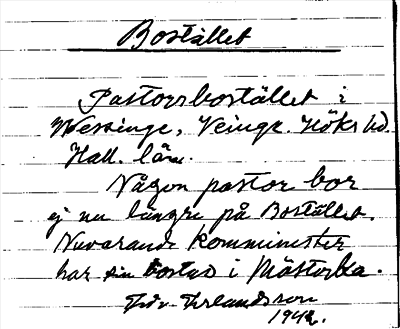 Bostället
Pastorsbostället i
Wessinge, Veinge. Höks hd.
Hall. län.
Någon pastor bor
ej nu längre på Bostället.
Nuvarande komminister
har sin bostad i Mästocka.
Erlandsson